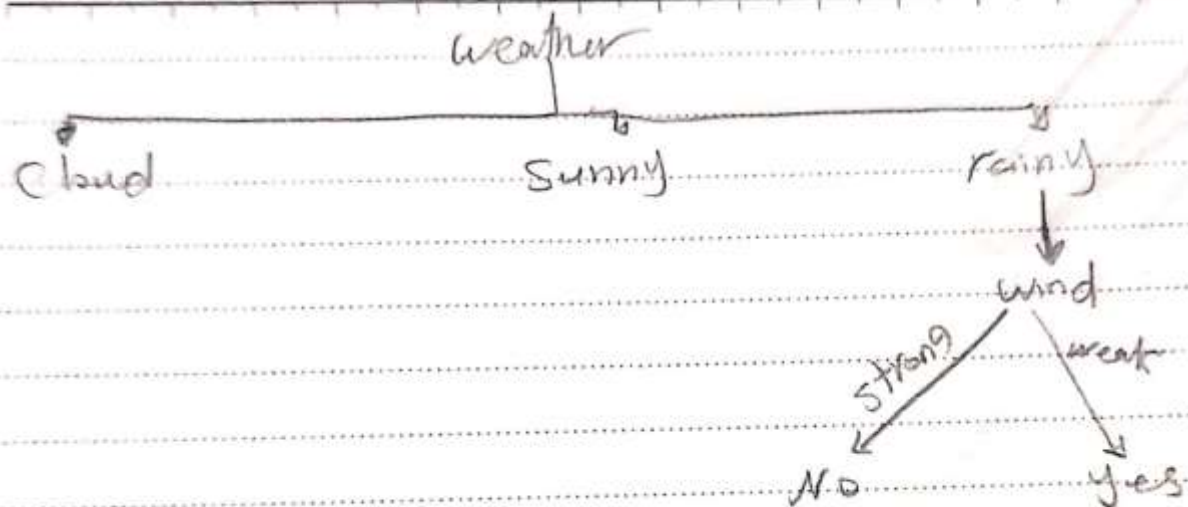 weather
Cloud Sunny rainy
wind
strong weak
No Yes